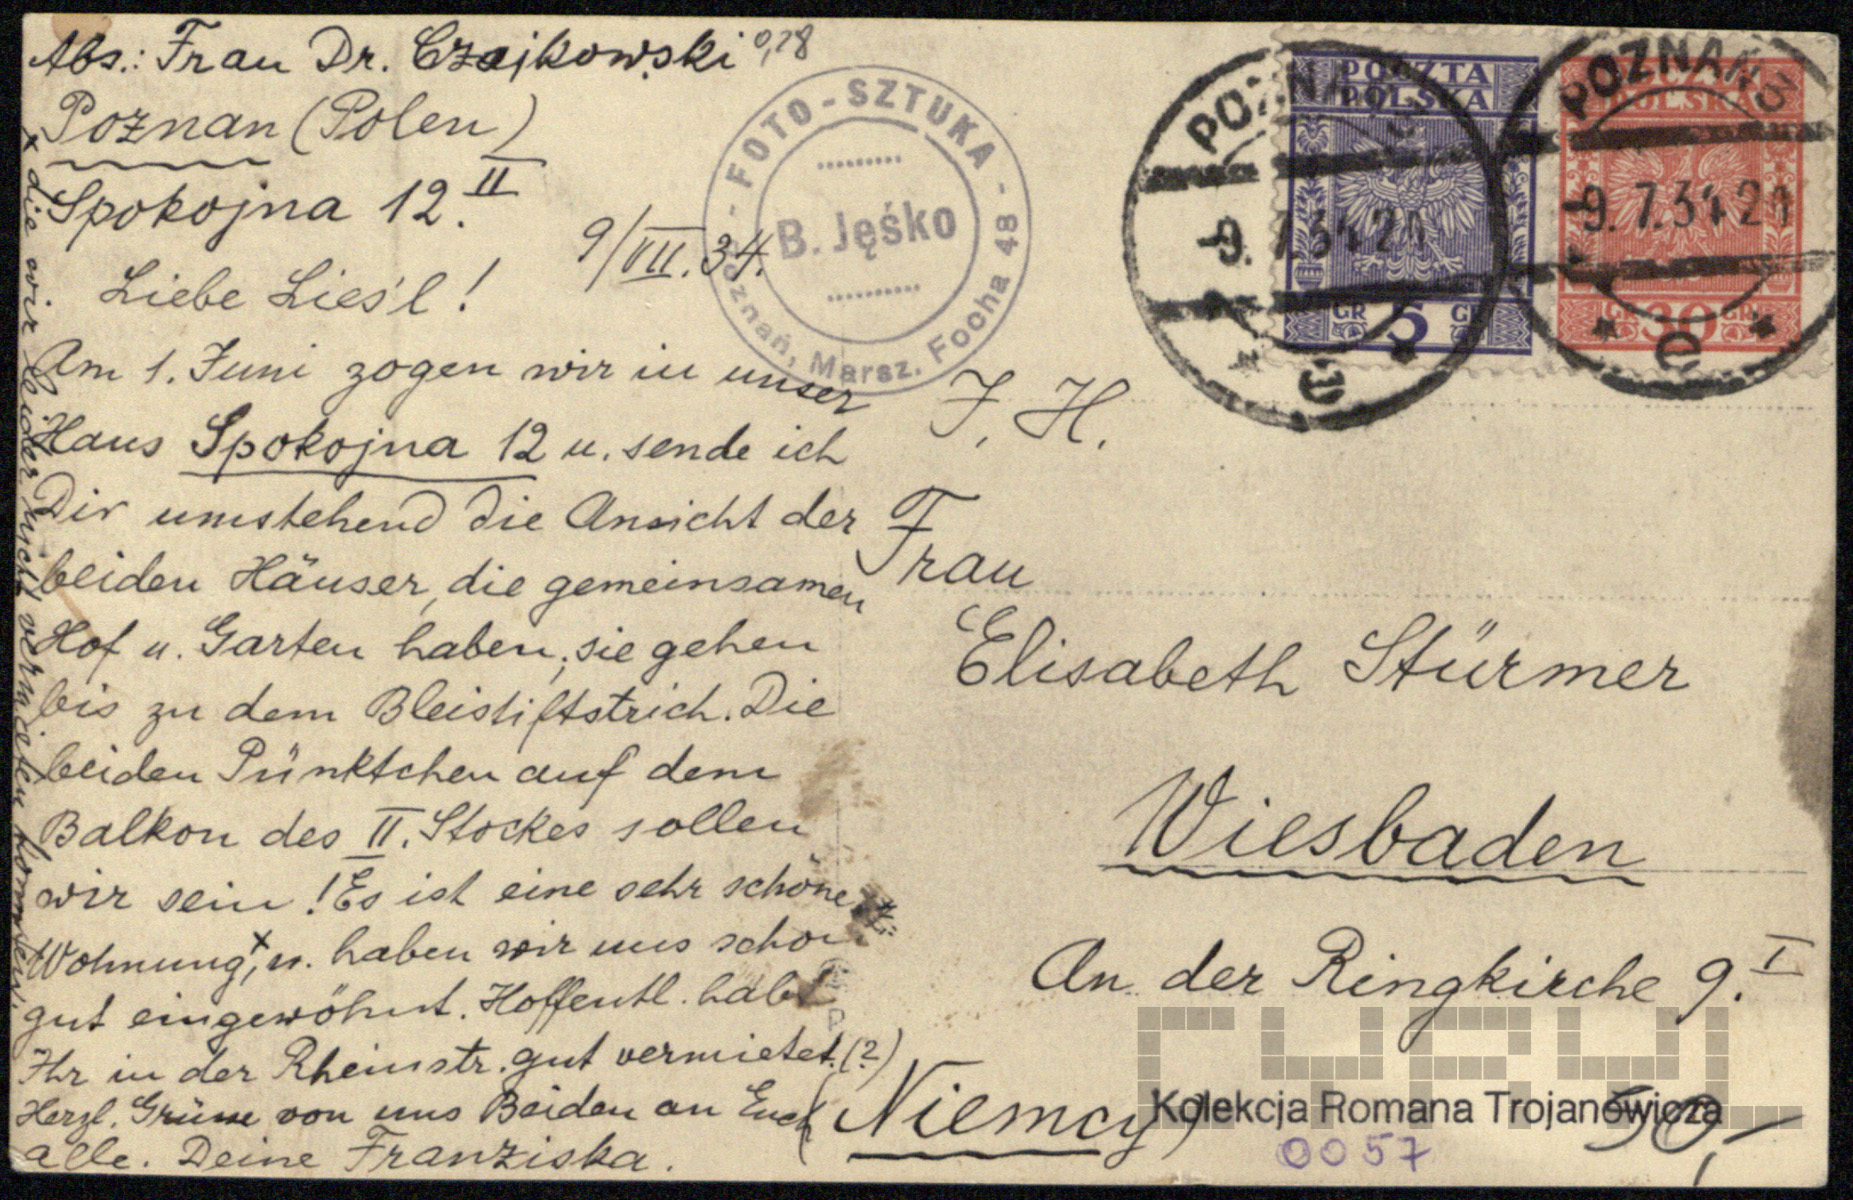 Abs.: Frau Dr. Czajkowski 0,28
Poznan (Polen)
Spokojna 12. II
9/VII. 34.
Liebe Lies'l!
Am 1. Juni zogen wir in unser
Haus Spokojna 12 u. sende ich
Dir umstehend die Ansicht der
beiden Häuser, die gemeinsamen
Hof u. Garten haben, sie gehen
bis zu dem Bleistiftstrich. Die
beiden Pünktchen auf dem
Balkon des II. Stockes sollen
wir sein! Es ist eine sehr schöne
Wohnung,x u. haben wir uns schon
gut eingewöhnt. Hoffentl. habt
Ihr in der Rheinstr. gut vermietet.(?)
Herzl. Grüsse von uns Beiden an Euch
alle. Deine Franziska.
x die wir leider nicht vermieten konnten.
FOTO-SZTUKA
B. Jęśko
Poznań, Marsz. Focha 48
POCZTA
POLSKA
5
GR GR
POLSKA
30
GR GR
POZNAŃ 3
-9. 7.34 21
POZNAŃ 3
-9. 7.34 21
I. H.
Frau
Elisabeth Stürmer
Wiesbaden
An der Ringkirche 9. I
(Niemcy)
CYRYL
Kolekcja Romana Trojanowicza
50,-
0057